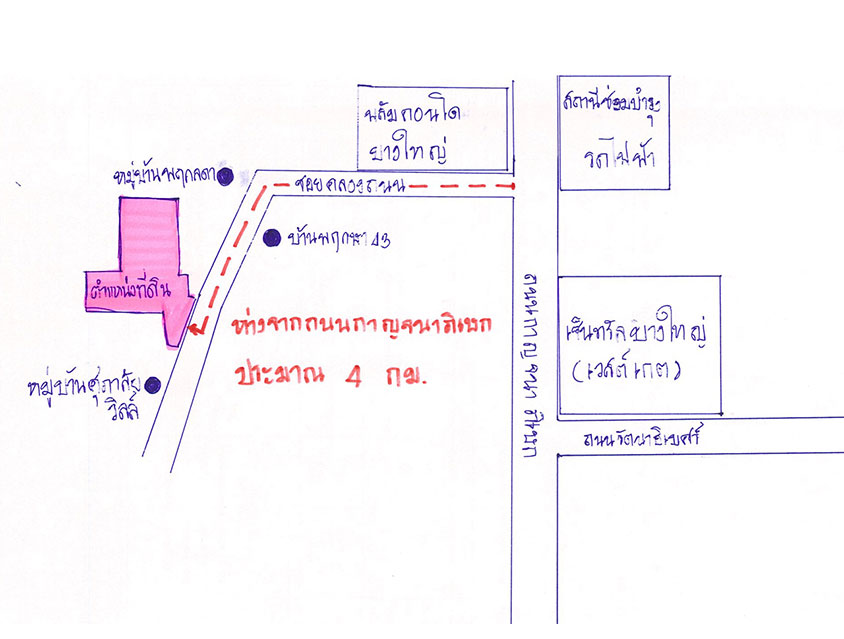 พลัมคอนโด
บางใหญ่
สถานีซ่อมบำรุง
รถไฟฟ้า
หมู่บ้านพฤกลดา
ซอยคลองถนน
บ้านพฤกษา 43
ตำแหน่งที่ดิน
ห่างจากถนนกาญจนาภิเษก
ประมาณ 4 กม.
ถนนกาญจนาภิเษก
เซ็นทรัลบางใหญ่
(เวสต์เกต)
หมู่บ้านศุภาลัย
วิลล์
ถนนรัตนาธิเบศร์